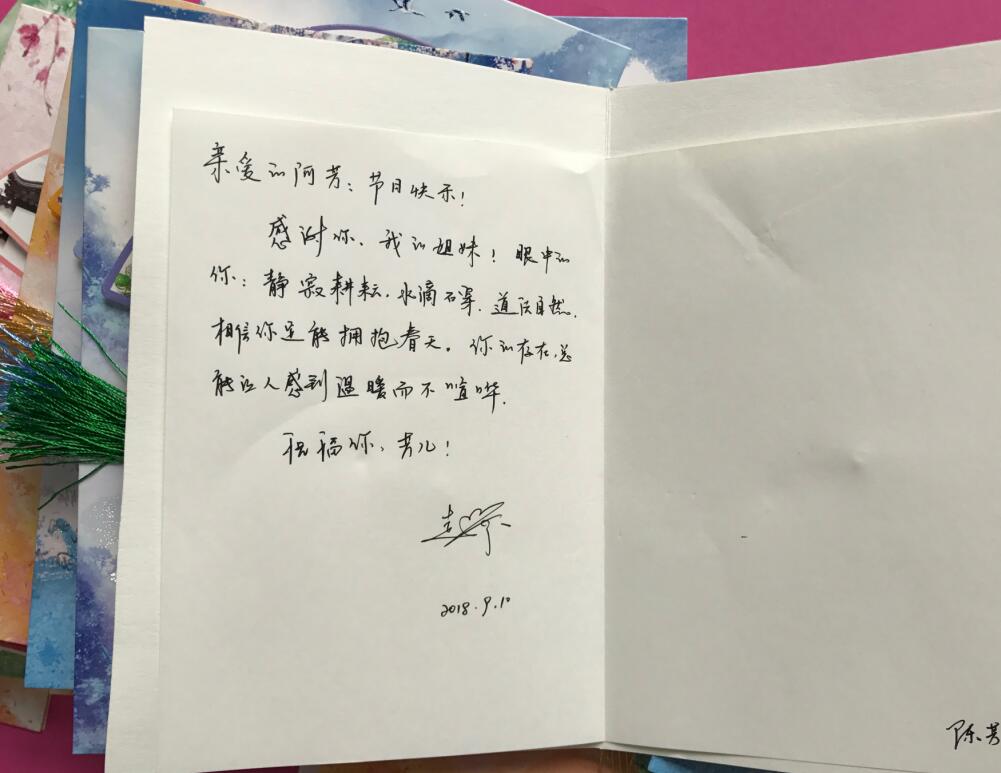 亲爱的阿芳：节日快乐！
感谢你，我的姐妹！眼中的
你：静寂耕耘，水滴石穿，道法自然，
相信你定能拥抱春天。你的存在，总
能让人感到温暖而不喧哗。
祝福你，芳儿！
2018.9.10
陈芳